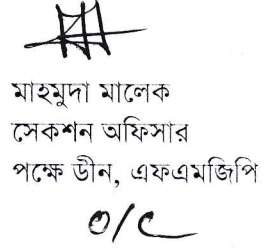 মাহমুদা মালেক
সেকশন অফিসার
পক্ষে ডীন, এফএমজিপি